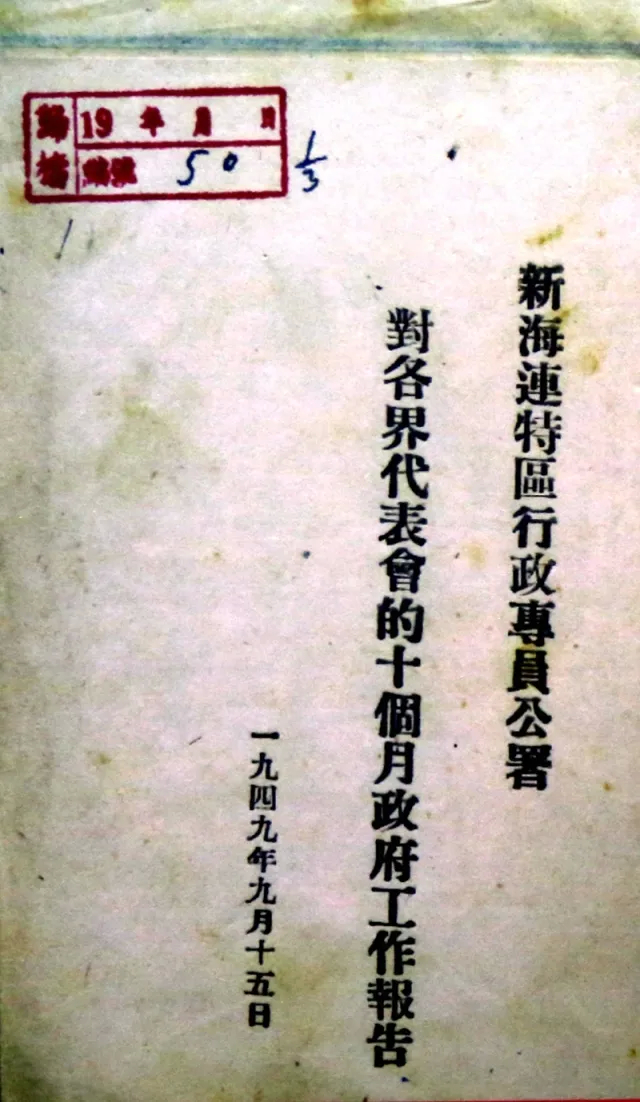 新海連特區行政專員公署
對各界代表會的十個月政府工作報告
一九四九年九月十五日
19 年 月 日
50
1/3